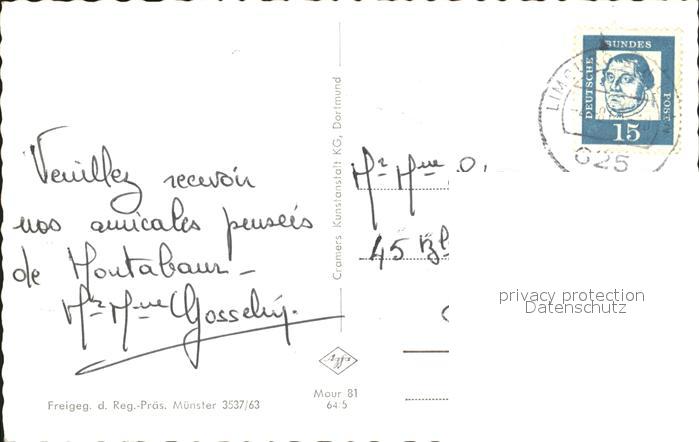 Veuillez recevoir
nos amicales pensées
de Montabaur –
Mr Mme Gosselin.
Freigeg. d. Reg.-Präs. Münster 3537/63
Cramers Kunstanstalt KG, Dortmund
Agfa
Mour 81
64/5
DEUTSCHE
BUNDES
POST
15
LIMBU
625
Mr Mme O.
45
privacy protection
Datenschutz